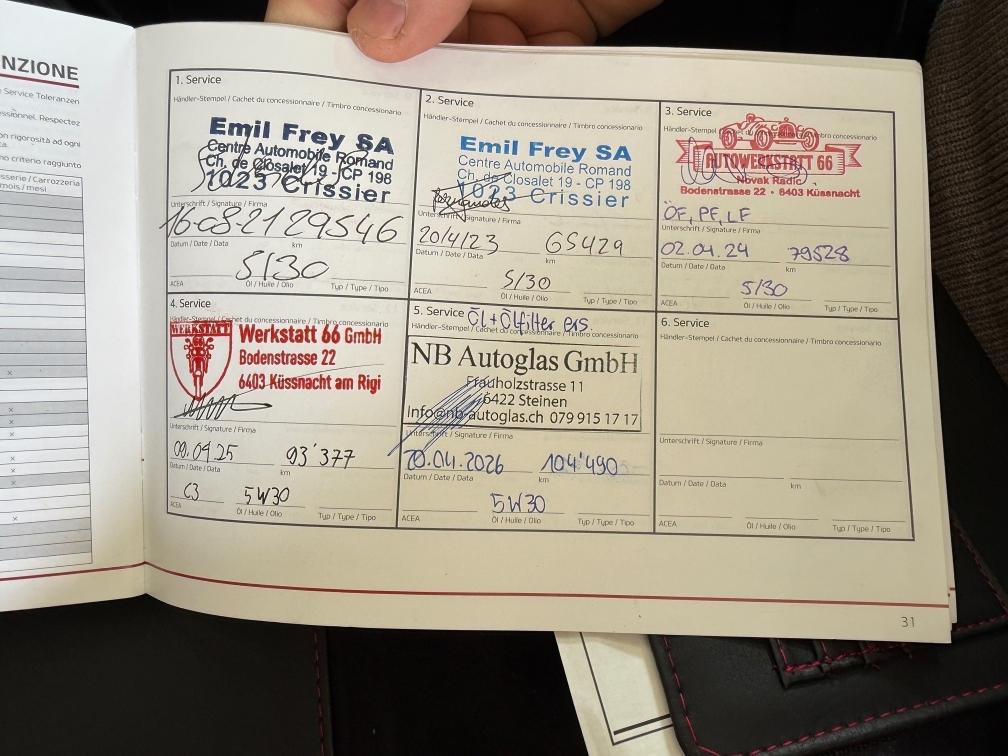 NZIONE
Service Toleranzen
ssionnel. Respectez
n rigorosità ad ogni
no criterio raggiunto
sserie / Carrozzeria
mois / mesi
1. Service
Händler-Stempel / Cachet du concessionnaire / Timbro concessionario
Emil Frey SA
Centre Automobile Romand
Ch. de Closalet 19 - CP 198
1023 Crissier
Unterschrift / Signature / Firma
Datum / Date / Data km
5/30
ACEA Öl / Huile / Olio Typ / Type / Tipo
2. Service
Händler-Stempel / Cachet du concessionnaire / Timbro concessionario
Emil Frey SA
Centre Automobile Romand
Ch. de Closalet 19 - CP 198
1023 Crissier
Unterschrift / Signature / Firma
20/4/23 65429
Datum / Date / Data km
5/30
ACEA Öl / Huile / Olio Typ / Type / Tipo
3. Service
Händler-Stempel
AUTOWERKSTATT 66
Novak Radic
Bodenstrasse 22 • 6403 Küssnacht
ÖF, PF, LF
Unterschrift / Signature / Firma
02.04.24 79528
Datum / Date / Data km
5/30
ACEA Öl / Huile / Olio Typ / Type / Tipo
4. Service
Händler-Stempel / Cachet du concessionnaire / Timbro concessionario
WERKSTATT
66
Werkstatt 66 GmbH
Bodenstrasse 22
6403 Küssnacht am Rigi
Unterschrift / Signature / Firma
09.04.25 93'377
Datum / Date / Data km
C3 5W30
ACEA Öl / Huile / Olio Typ / Type / Tipo
5. Service Öl+Ölfilter ers.
Händler-Stempel / Cachet du concessionnaire / Timbro concessionario
NB Autoglas GmbH
Frauholzstrasse 11
6422 Steinen
Info@nb-autoglas.ch 079 915 17 17
Unterschrift / Signature / Firma
20.04.2026 104'490
Datum / Date / Data km
5W30
ACEA Öl / Huile / Olio Typ / Type / Tipo
6. Service
Händler-Stempel / Cachet du concessionnaire / Timbro concessionario
Unterschrift / Signature / Firma
Datum / Date / Data km
ACEA Öl / Huile / Olio Typ / Type / Tipo
31